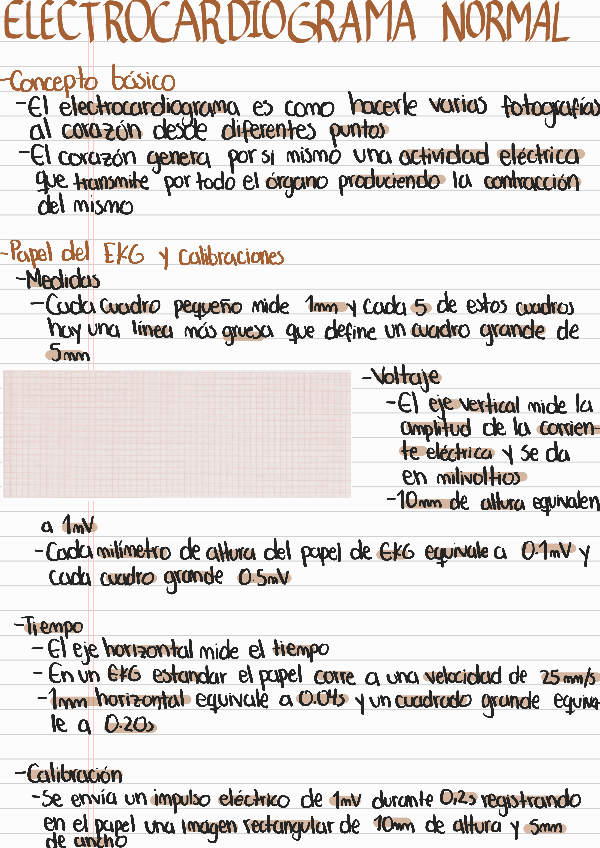 ELECTROCARDIOGRAMA NORMAL
-Concepto básico
-El electrocardiograma es como hacerle varias fotografías
al corazón desde diferentes puntos
-El corazón genera por si mismo una actividad eléctrica
que transmite por todo el órgano produciendo la contracción
del mismo
-Papel del EKG y calibraciones
-Medidas
-Cada cuadro pequeño mide 1mm y cada 5 de estos cuadros
hay una línea más gruesa que define un cuadro grande de
5mm
-Voltaje
-El eje vertical mide la
amplitud de la corrien-
te eléctrica y se da
en milivoltios
-10mm de altura equivalen
a 1mV
-Cada milímetro de altura del papel de EKG equivale a 0.1mV y
cada cuadro grande 0.5mV
-Tiempo
-El eje horizontal mide el tiempo
-En un EKG estandar el papel corre a una velocidad de 25mm/s
-1mm horizontal equivale a 0.04s y un cuadrado grande equiva
le a 0.20s
-Calibración
-Se envía un impulso eléctrico de 1mV durante 0,2s registrando
en el papel una imagen rectangular de 10mm de altura y 5mm
de ancho